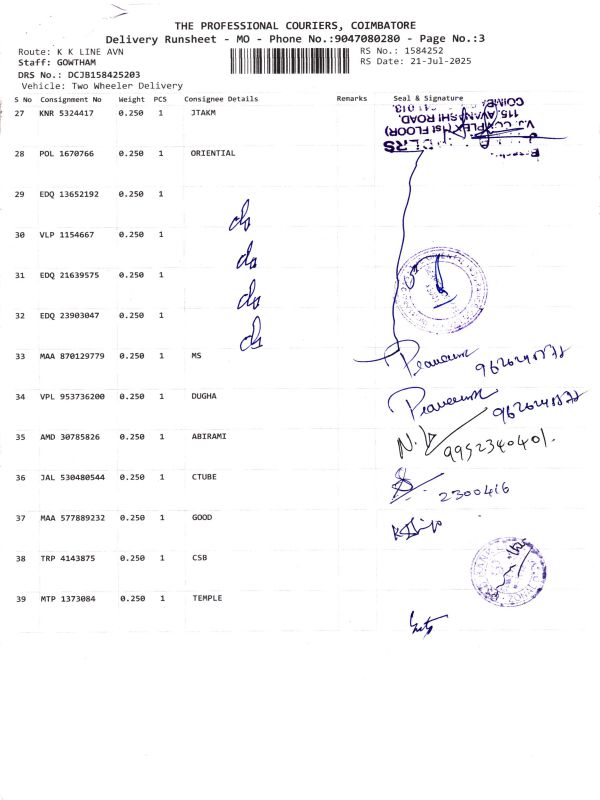 THE PROFESSIONAL COURIERS, COIMBATORE
Delivery Runsheet - MO - Phone No.:9047080280 - Page No.:3
Route: K K LINE AVN RS No.: 1584252
Staff: GOWTHAM RS Date: 21-Jul-2025
DRS No.: DCJB158425203
Vehicle: Two Wheeler Delivery
S No Consignment No Weight PCS Consignee Details Remarks Seal & Signature
27 KNR 5324417 0.250 1 JTAKM
28 POL 1670766 0.250 1 ORIENTIAL
29 EDQ 13652192 0.250 1
do
30 VLP 1154667 0.250 1
do
31 EDQ 21639575 0.250 1
do
32 EDQ 23903047 0.250 1
do
33 MAA 870129779 0.250 1 MS
34 VPL 953736200 0.250 1 DUGHA
35 AMD 30785826 0.250 1 ABIRAMI
9952340401.
36 JAL 530480544 0.250 1 CTUBE
2300416
37 MAA 577889232 0.250 1 GOOD
38 TRP 4143875 0.250 1 CSB
39 MTP 1373084 0.250 1 TEMPLE